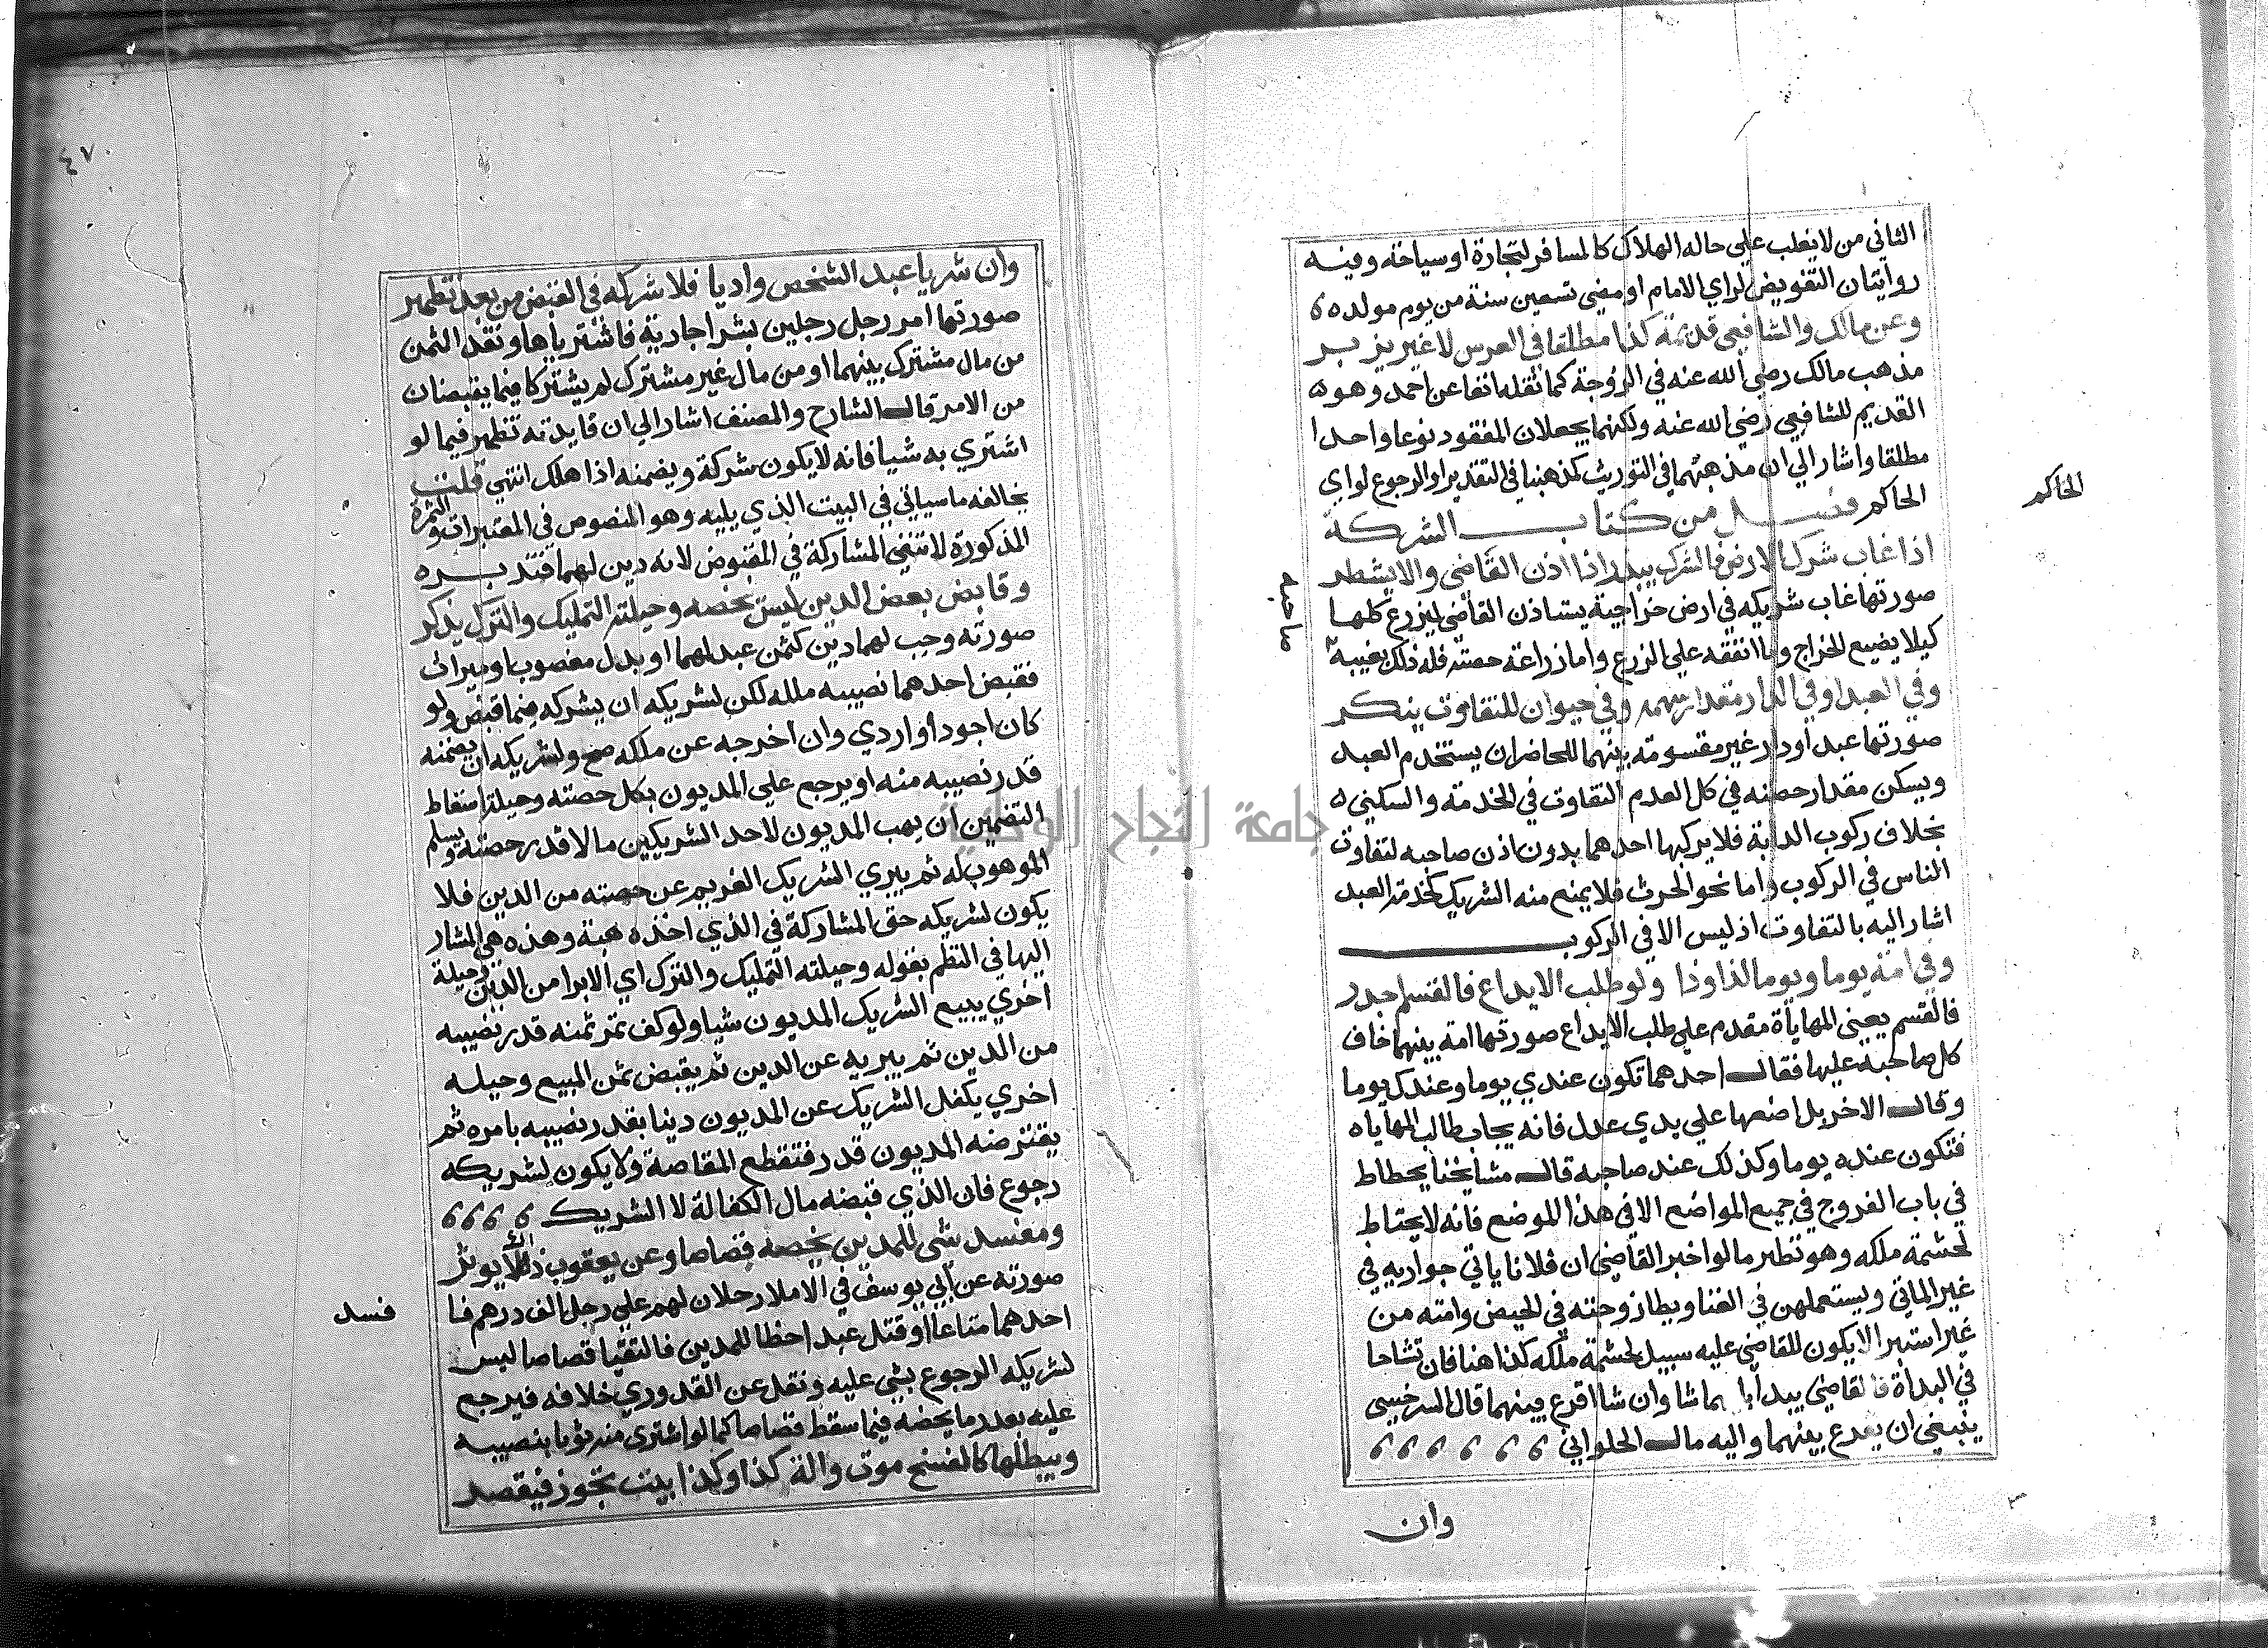 الثاني من لا يغلب علي حاله الهلاك كالمسافر لتجارة او سياحة وفيه
روايتان التفويض لراي الامام او مضي تسعين سنة من يوم مولده
وعن مالك والشافعي قديمه كذا مطلقا في العرس لا غير يزبر
مذهب مالك رضي الله عنه في الزوجة كما نقله انفا عن احمد وهو
القديم للشافعي رضي الله عنه ولكنهما يجعلان المفقود نوعا واحدا
مطلقا واشار الي ان مذهبهما في التوريث كمذهبنا في التقدير او الرجوع لراي
الحاكم فصل من كتاب الشركة
الحاكم
اذا غاب شرك الارض فالشرك يبذر اذا اذن القاضي والا يشطر
صورتها غاب شريكه في ارض خراجية يستاذن القاضي ليزرع كلها
كيلا يضيع الخراج وما انفقه علي الزرع واما زراعة حصته فله ذلك بغيبة
صاحبه
وفي العبد او في الدار مقدار سهمه وفي حيوان للتفاوت ينكر
صورتها عبد او دار غير مقسومة بينهما للحاضر ان يستخدم العبد
ويسكن مقدار حصته في كل العدم التفاوت في الخدمة والسكني
بخلاف ركوب الدابة فلا يركبها احدهما بدون اذن صاحبه لتفاوت
الناس في الركوب واما نحو الحرث فلا يمنع منه الشريك كخدمة العبد
اشار اليه بالتفاوت اذ ليس الا في الركوب
وفي امة يوما ويوما لذا وذا ولو طلب الايداع فالقسم اجدر
فالقسم يعني المهاياة مقدم علي طلب الايداع صورتها امة بينهما خاف
كل صاحبه عليها فقال احدهما تكون عندي يوما وعندك يوما
وقال الاخر بل اضعها علي يدي عدل فانه يجاب طالب المهاياه
فتكون عنده يوما وكذلك عند صاحبه قال مشايخنا يحطاط
في باب الفروج في جميع المواضع الا في هذا الموضع فانه لا يحتاط
لحشمة ملكه وهو نظير ما لو اخبر القاضي ان فلانا ياتي جواريه في
غير الماتي ويستعملهن في الغنا ويطا زوجته في الحيض وامته من
غير استبرا لا يكون للقاضي عليه سبيل لحشمة ملكه كذا هنا فان تشاحا
في البداة فالقاضي يبدا بما شا وان شا اقرع بينهما قال السرخسي
ينبغي ان يقرع بينهما واليه مال الحلواني
وان
٤٧
وان شريا عبد الشخص واديا فلا شركه في القبض من بعد تظهر
صورتها امر رجل رجلين بشرا جارية فاشترياها ونقد الثمن
من مال مشترك بينهما او من مال غير مشترك لم يشتركا فيما يقبضان
من الامر قال الشارح والمصنف اشار الي ان فايدته تظهر فيما لو
اشتري به شيا فانه لا يكون شركة ويضمنه اذا هلك انتهي قلت
يخالفه ما سياتي في البيت الذي يليه وهو المنصوص في المعتبرات والثمرة
المذكورة لا تنفي المشاركة في المقبوض لانه دين لهما فتدبره
وقابض بعض الدين ليس يخصه وحيلته التمليك والترك يذكر
صورته وجب لهما دين كثمن عبد لهما او بدل مغصوب او ميراث
فقبض احدهما نصيبه ملكه لكن لشريكه ان يشركه فيما قبض ولو
كان اجود او اردي وان اخرجه عن ملكه صح ولشريكه ان يضمنه
قدر نصيبه منه او يرجع علي المديون بكل حصته وحيلة اسقاط
التضمين ان يهب المديون لاحد الشريكين مالا قدر حصته ويسلم
الموهوب له ثم يبري الشريك الغريم عن حصته من الدين فلا
يكون لشريكه حق المشاركة في الذي اخذه هبة وهذه هي المشار
اليها في النظم بقوله وحيلته التمليك والترك اي الابرا من الدين وحيلة
اخري يبيع الشريك المديون شيا ولو كف تمر ثمنه قدر نصيبه
من الدين ثم يبريه عن الدين ثم يقبض ثمن المبيع وحيله
اخري يكفل الشريك عن المديون دينا بقدر نصيبه بامره ثم
يقترضه المديون قدر فتقطع المقاصة ولا يكون لشريكه
رجوع فان الذي قبضه مال الكفالة لا الشريك
ومفسد شي للمدين يخصه قصاصا وعن يعقوب ذلك لا يوثر
صورته عن ابي يوسف في الاملا رحلان لهم علي رجل الف درهم فا
فسد
احدهما متاعا او قتل عبد اخطا للمدين فالتقيا قصاصا ليس
لشريكه الرجوع بشي عليه ونقل عن القدوري خلافه فيرجع
عليه بعدر ما يخصه فيما سقط قصاصا كما لو اشتري منه ثوبا بنصيبه
ويبطلها كالفسخ موت والة كذا وكذا بيت تجوز فيقصد